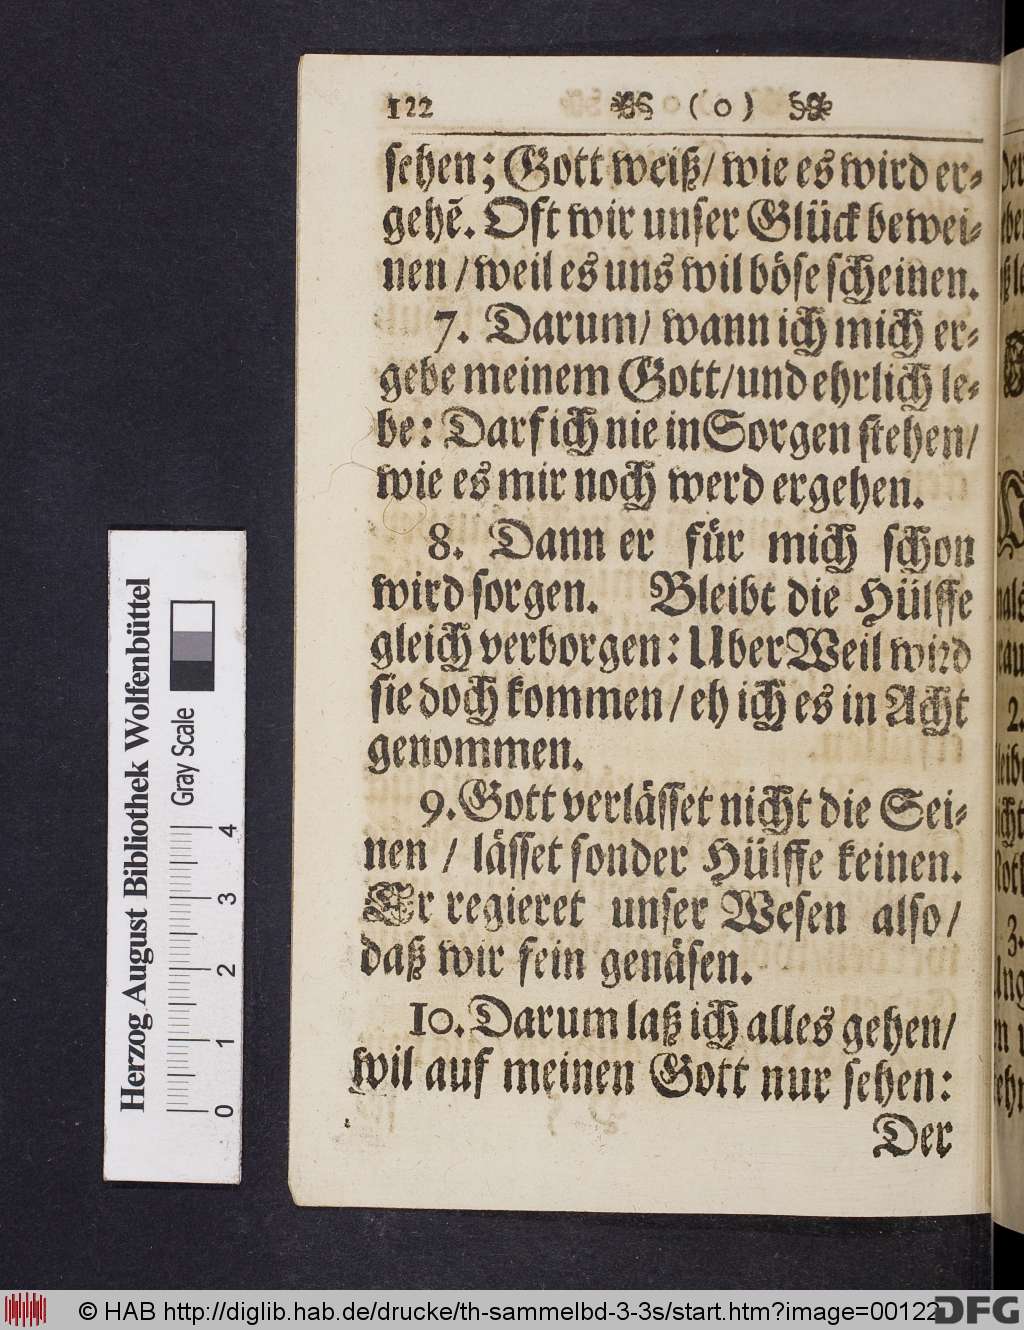 122 (o)
sehen; Gott weiß/ wie es wird er-
gehẽ. Oft wir unser Glück bewei-
nen / weil es uns wil böse scheinen.
7. Darum/ wann ich mich er-
gebe meinem Gott/und ehrlich le-
be: Darf ich nie in Sorgen stehen/
wie es mir noch werd ergehen.
8. Dann er für mich schon
wird sorgen. Bleibt die Hülffe
gleich verborgen: Uber Weil wird
sie doch kommen / eh ich es in Acht
genommen.
9. Gott verlässet nicht die Sei-
nen / lässet sonder Hülffe keinen.
Er regieret unser Wesen also/
daß wir fein genäsen.
10. Darum laß ich alles gehen/
wil auf meinen Gott nur sehen:
Der
Herzog August Bibliothek Wolfenbüttel
Gray Scale
0 1 2 3 4
© HAB http://diglib.hab.de/drucke/th-sammelbd-3-3s/start.htm?image=00122
DFG